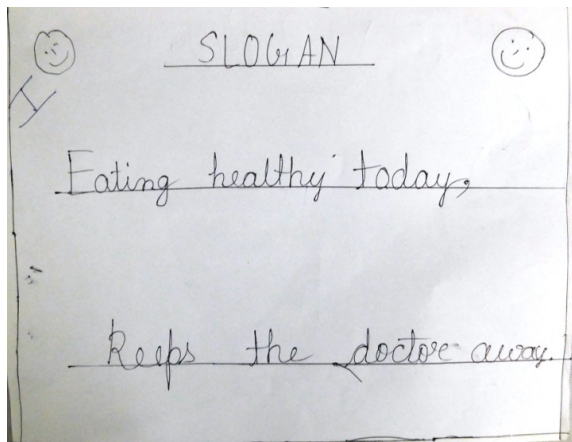 SLOGAN
Eating healthy today,
keeps the doctor away.